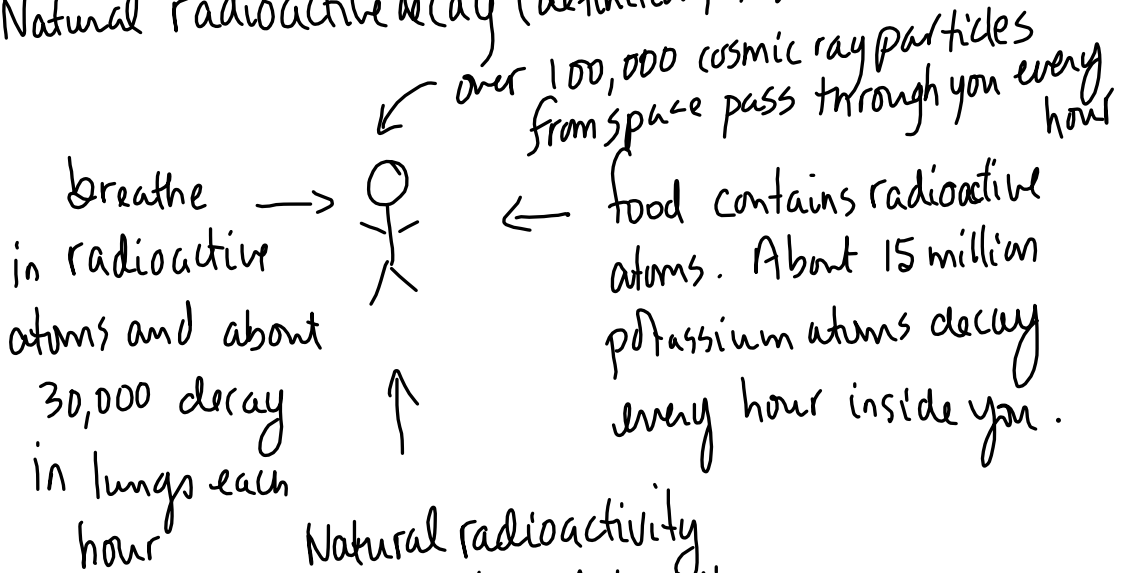 Natural radioactive decay (definition)
over 100,000 cosmic ray particles
from space pass through you every
hour
breathe
in radioactive
atoms and about
30,000 decay
in lungs each
hour
food contains radioactive
atoms. About 15 million
potassium atoms decay
every hour inside you.
Natural radioactivity